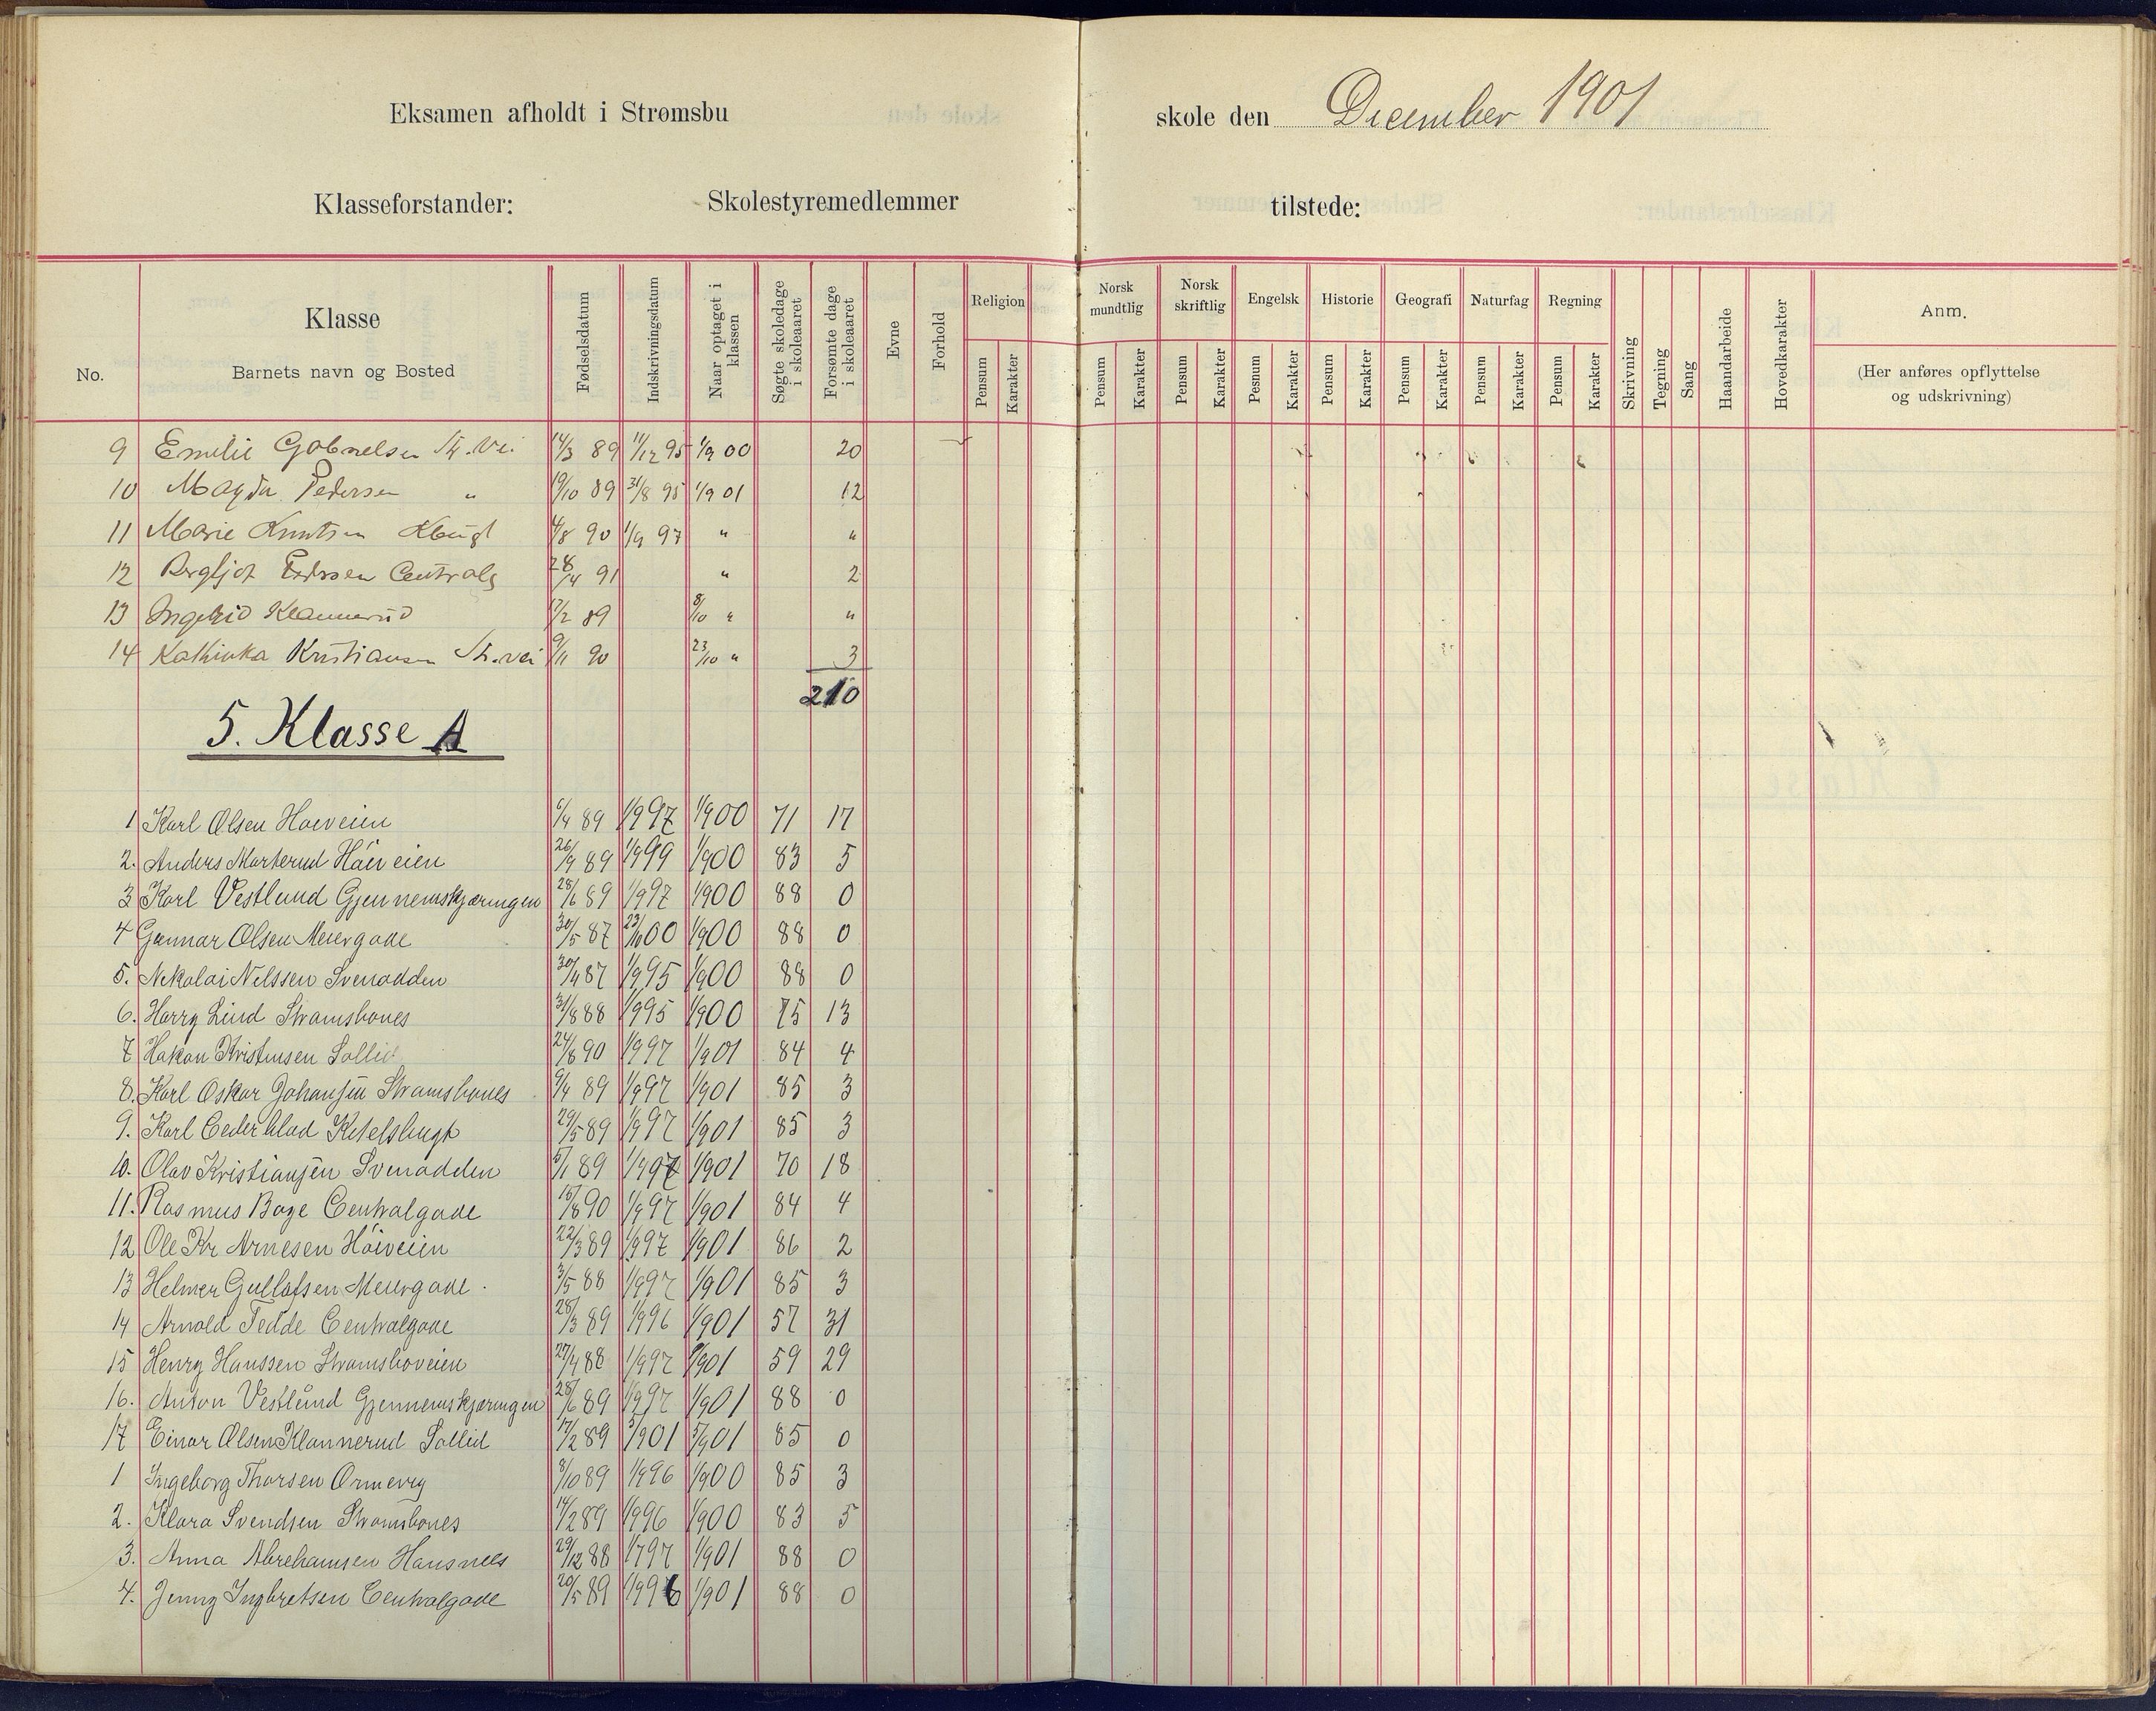 Eksamen afholdt i Strømsbu skole den December 1901
Klasseforstander: Skolestyremedlemmer tilstede:
No. Klasse Barnets navn og Bosted Fødselsdatum Indskrivningsdatum Naar optaget i klassen Søgte skoledage i skoleaaret Forsømte dage i skoleaaret Evne Forhold Religion Pensum Karakter Norsk mundtlig Pensum Karakter Norsk skriftlig Pensum Karakter Engelsk Pesnum Karakter Historie Pensum Karakter Geografi Pensum Karakter Naturfag Pensum Karakter Regning Pensum Karakter Skrivning Tegning Sang Haandarbeide Hovedkarakter Anm. (Her anføres opflyttelse og udskrivning)
9 Emilie Gabrielsen St. Vei 14/3 89 11/12 95 1/9 00 20
10 Magda Pedersen " 19/10 89 31/8 95 1/9 01 12
11 Marie Knutsen Kbugt 4/8 90 1/9 97 " "
12 Bergljot Pedersen Centralg 28/4 91 " 2
13 Ingebrid Klannerud 17/2 89 8/10 " "
14 Kathinka Kristiansen St. vei 9/11 90 23/10 " 3
210
5. Klasse A
1 Karl Olsen Høiveien 6/4 89 1/9 97 1/9 00 71 17
2. Anders Markerud Høiveien 26/9 89 1/9 99 1/9 00 83 5
3 Karl Vestlund Gjennemskjæringen 28/6 89 1/9 97 1/9 00 88 0
4 Gunnar Olsen Meiergade 30/5 87 23/10 00 1/9 00 88 0
5. Nikolai Nilssen Svenodden 30/4 87 1/9 95 1/9 00 88 0
6. Harry Lind Strømsbones 31/8 88 1/9 95 1/9 00 75 13
7 Hakon Kristensen Sollid 24/8 90 1/9 97 1/9 01 84 4
8. Karl Oskar Johansen Strømsbones 9/4 89 1/9 97 1/9 01 85 3
9. Karl Cederblad Kitelsbugt 29/5 89 1/9 97 1/9 01 85 3
10. Olav Kristiansen Svenodden 5/1 89 1/9 97 1/9 01 70 18
11. Rasmus Boye Centralgade 15/8 90 1/9 97 1/9 01 84 4
12 Ole Kr Arnesen Høiveien 22/3 89 1/9 97 1/9 01 86 2
13 Helmer Gullofsen Meiergade. 3/5 88 1/9 97 1/9 01 85 3
14 Arnold Tedde Centralgade 28/3 89 1/9 96 1/9 01 57 31
15 Henry Hanssen Strømsboveien 27/4 88 1/9 97 1/9 01 59 29
16. Anton Vestlund Gjennemskjæringen 28/6 89 1/9 97 1/9 01 88 0
17 Einar Olsen Klannerud Sollid 17/2 89 5/9 01 5/9 01 85 0
1 Ingeborg Thorsen Ormevig 8/10 89 1/9 96 1/9 00 85 3
2. Klara Svendsen Strømsbones 14/2 89 1/9 96 1/9 00 83 5
3. Anna Abrehamsen Hansnees 29/12 88 1/7 97 1/9 01 88 0
4. Jenny Ingbretsen Centralgade 20/5 89 1/9 96 1/9 01 88 0